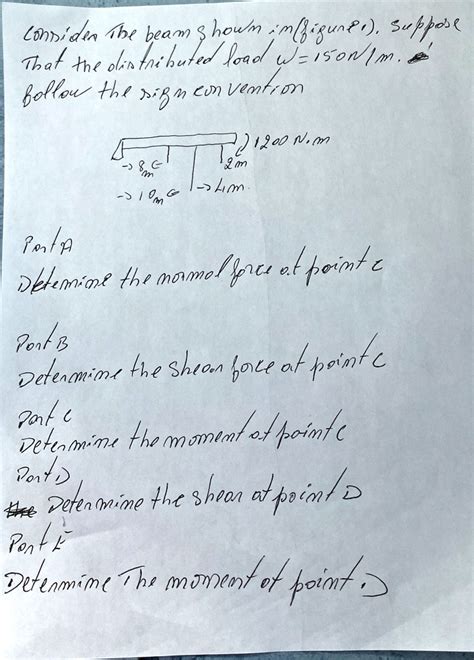 Consider The beam shown in (figure 1). Suppose
That the distributed load w = 150 N/m.
follow the sign convention
) 1200 N.m
-> 8m <-
2m
-> 10m <-
-> 4m
Part A
Determine the normal force at point c
Part B
Determine the shear force at point c
Part C
Determine the moment at point c
Part D
Determine the shear at point D
Part E
Determine The moment at point D